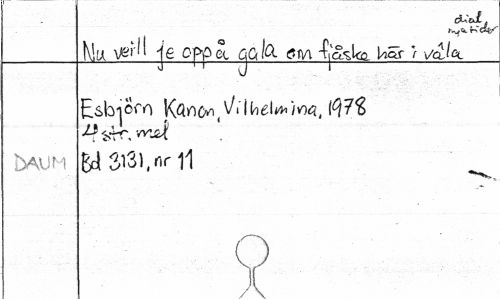 dial
nya tider
Nu veill je oppå gala om fjåska här i våla
Esbjörn Kanon, Vilhelmina, 1978
4 str. mel
DAUM Bd 3131, nr 11